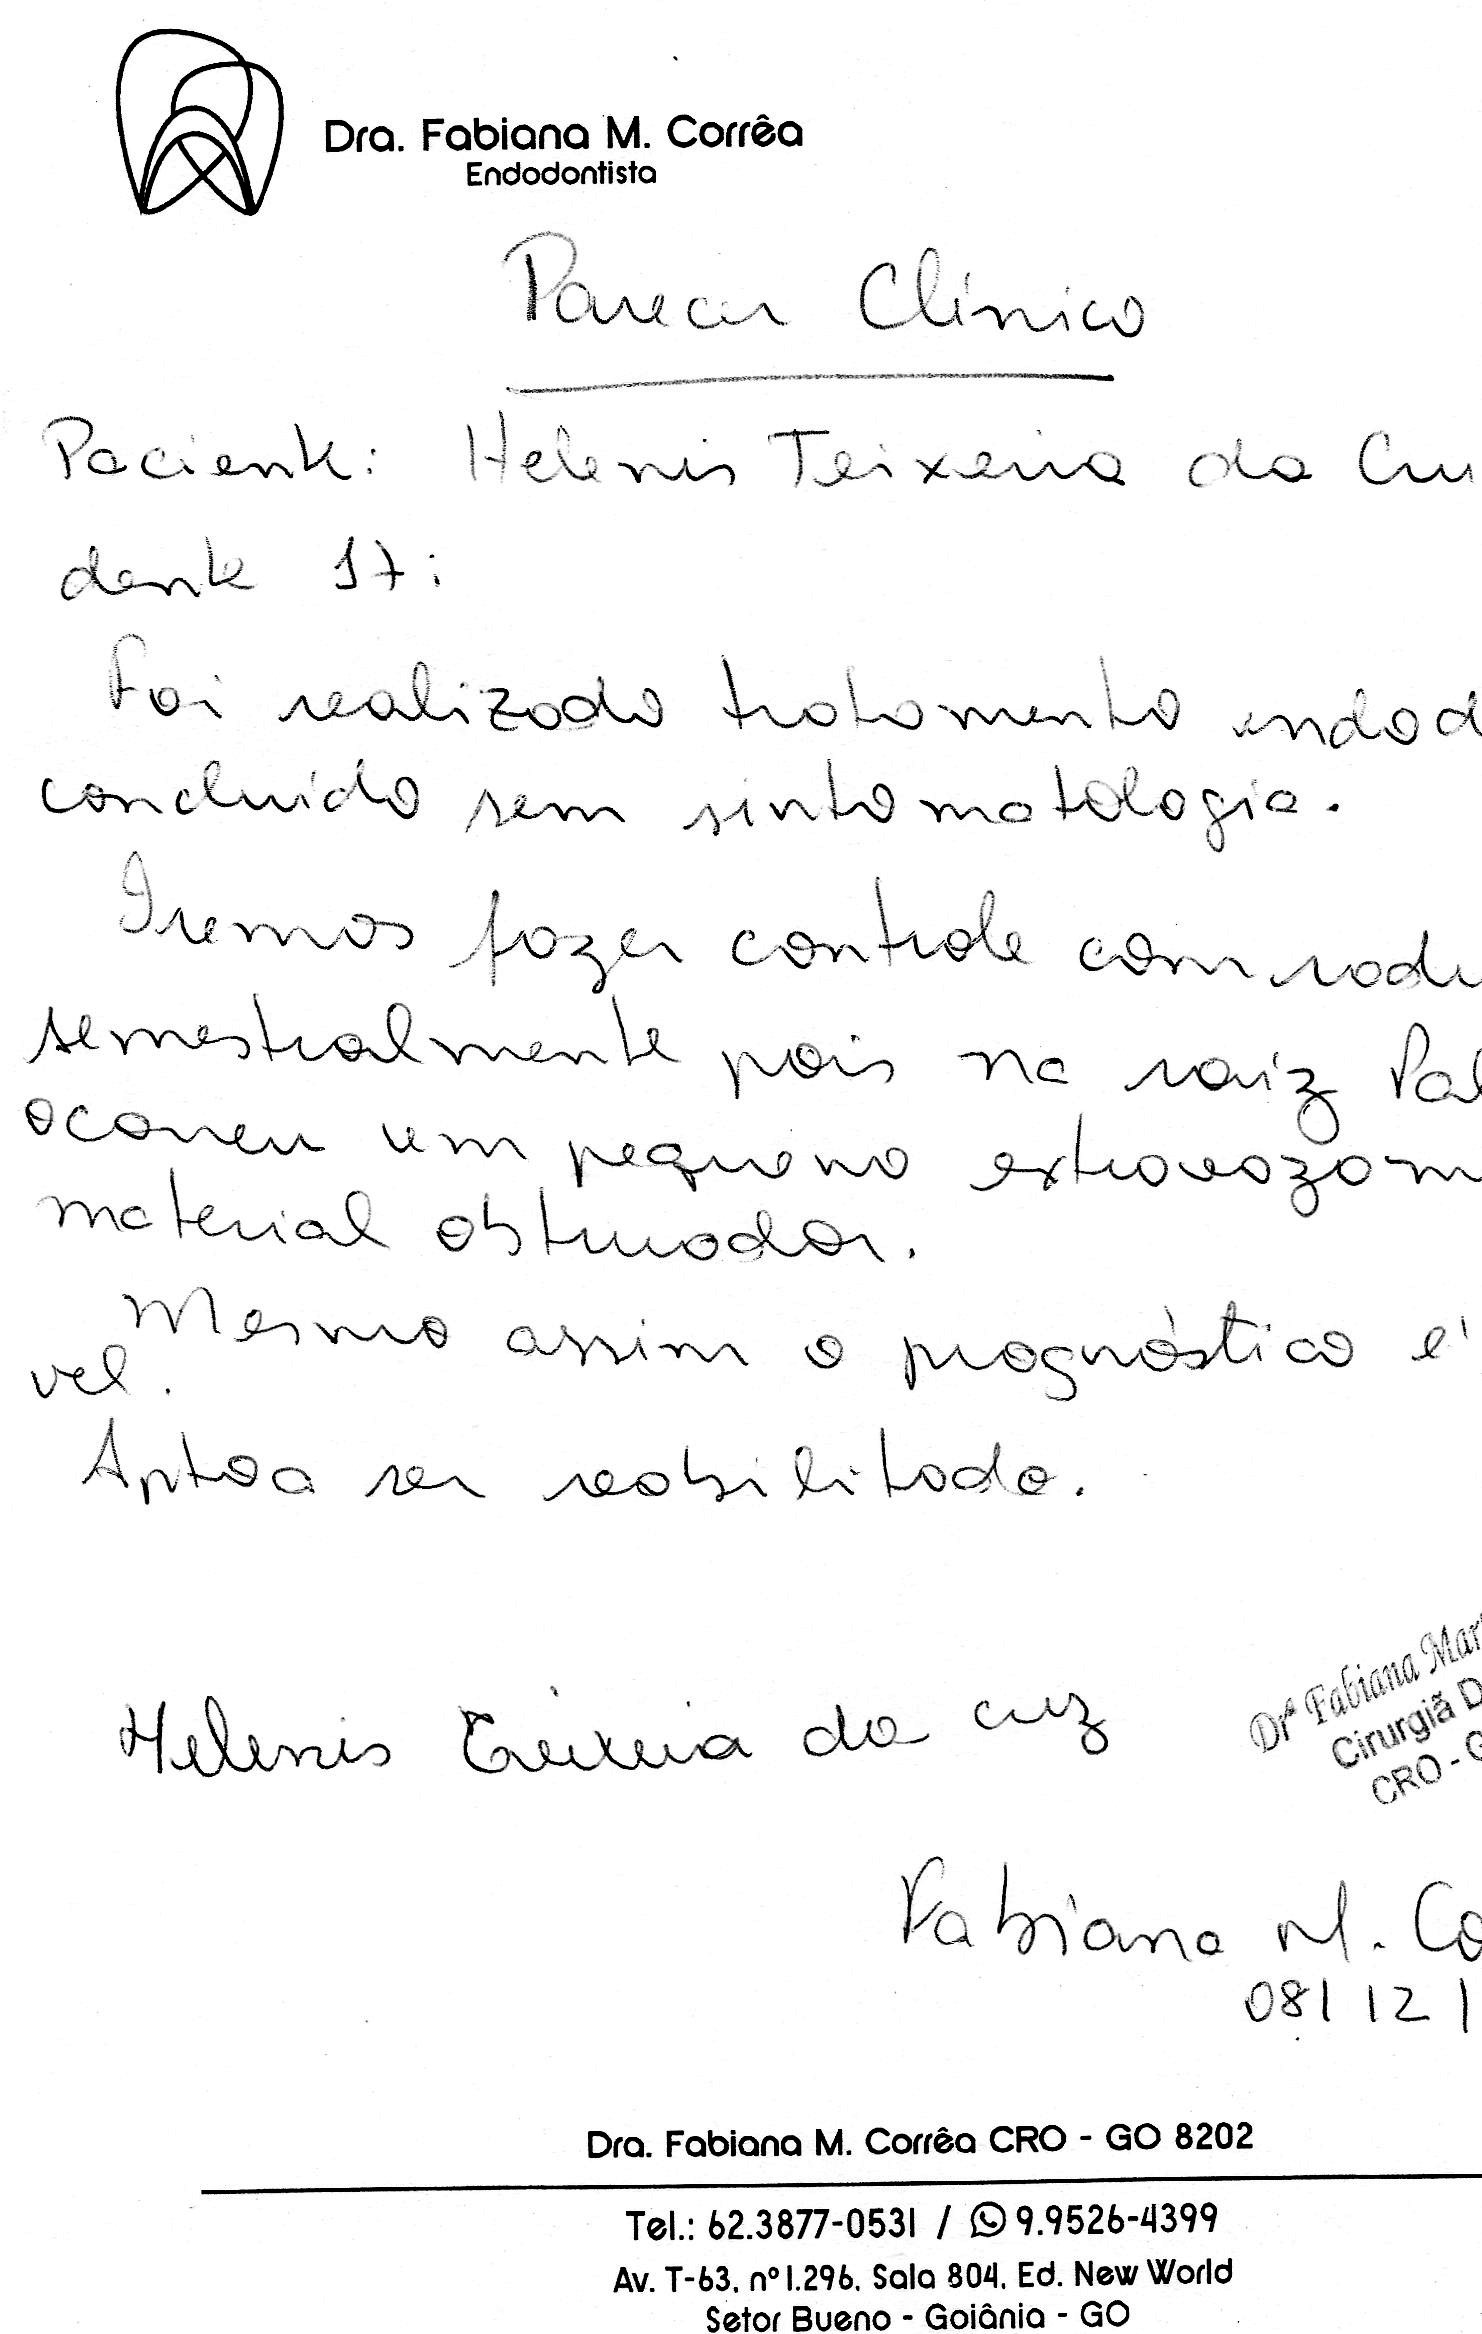 Dra. Fabiana M. Corrêa
Endodontista
Parecer Clínico
Paciente: Helenis Teixeira da Cru
dente 17:
Foi realizado tratamento endod
concluído sem sintomatologia.
Iremos fazer controle com radi
semestralmente pois na raiz Pal
ocorreu um pequeno extravazam
material obturador.
Mesmo assim o prognóstico é
vel.
Apto a ser reabilitado.
Helenis Teixeira da cruz
Drª Fabiana Mar
Cirurgiã D
CRO - G
Fabiana M. Co
08/12/
Dra. Fabiana M. Corrêa CRO - GO 8202
Tel.: 62.3877-0531 / 9.9526-4399
Av. T-63, nº 1.296, Sala 804, Ed. New World
Setor Bueno - Goiânia - GO